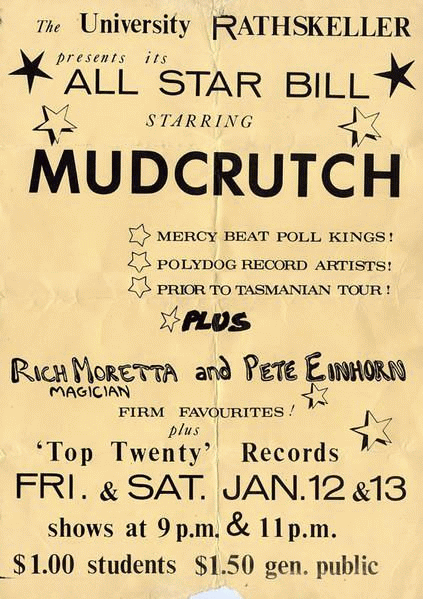 The University RATHSKELLER
presents its
ALL STAR BILL
STARRING
MUDCRUTCH
MERCY BEAT POLL KINGS!
POLYDOG RECORD ARTISTS!
PRIOR TO TASMANIAN TOUR!
PLUS
RICH MORETTA and PETE EINHORN
MAGICIAN
FIRM FAVOURITES!
plus
'Top Twenty' Records
FRI. & SAT. JAN. 12 & 13
shows at 9 p.m. & 11 p.m.
$1.00 students $1.50 gen. public